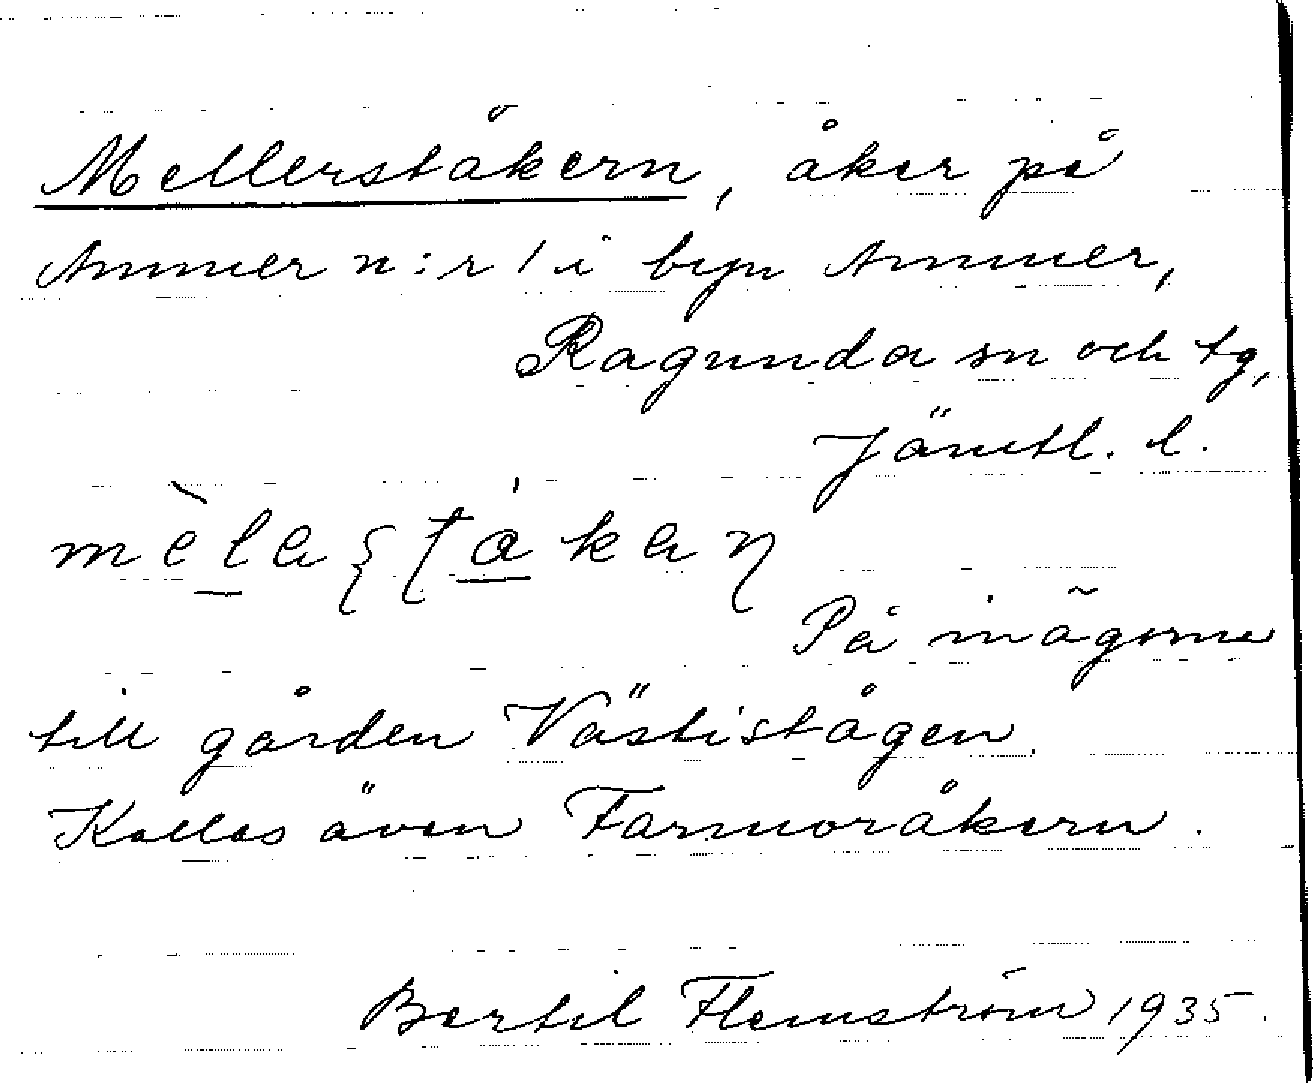 Mellerståkern, åker på
Ammer n:r 1 i byn Ammer,
Ragunda sn och tg,
Jämtl. l.
På inägorna
till gården Västistågen.
Kallas även Farmoråkern.
Bertil Flemström 1935.